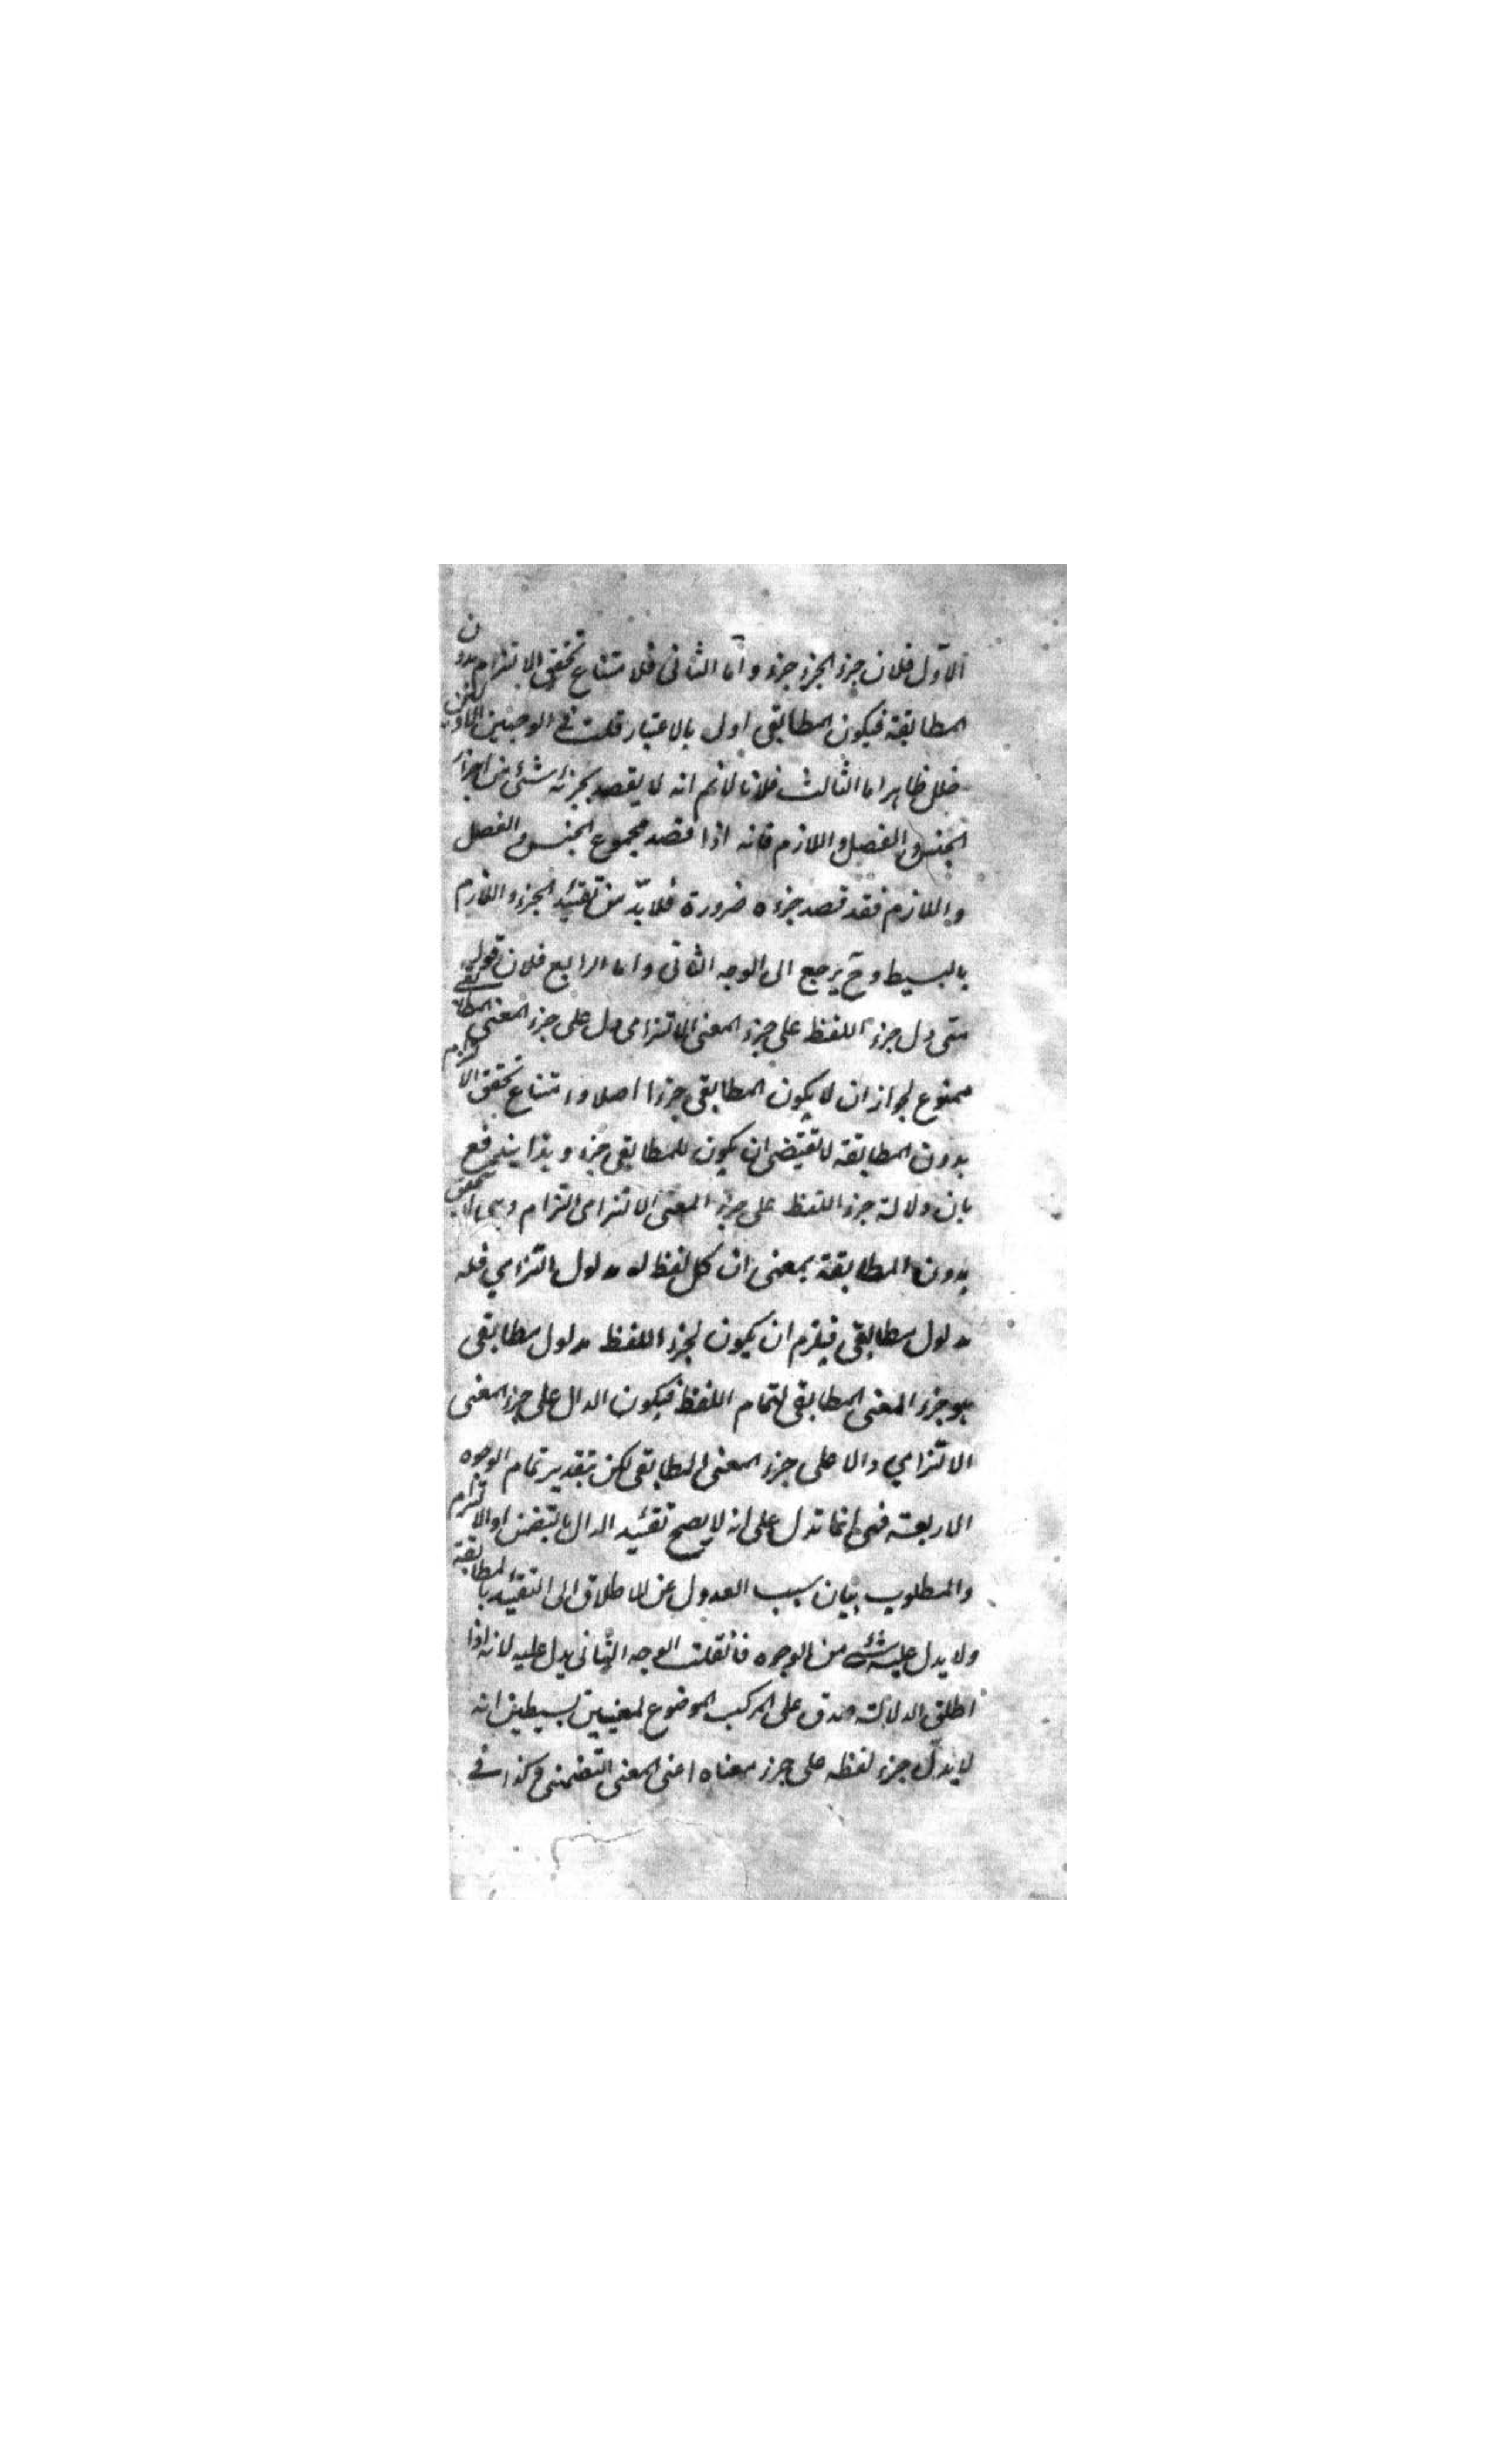 الاول فلان جزء الجزء جزء واما الثانى فلامتناع تحقق الالتزام بدون
المطابقة فيكون المطابقى اولى بالاعتبار قلت فى الوجهين الاولين
خلل ظاهر اما الثالث فلانا لانم انه لا يقصد بجزئه شئ من اجزاء
الجنس والفصل واللازم فانه اذا قصد مجموع الجنس والفصل
واللازم فقد قصد جزءه ضرورة فلابد من تقييد الجزء واللازم
بالبسيط وح يرجع الى الوجه الثانى واما الرابع فلان قولهم
متى دل جزء اللفظ على جزء المعنى الالتزامى دل على جزء المعنى المطابقى
ممنوع لجواز ان لا يكون المطابقى جزءا اصلا وامتناع تحقق الالتزام
بدون المطابقة لا تقتضى ان يكون للمطابقى جزء وبهذا يندفع
بان دلالة جزء اللفظ على جزء المعنى الالتزامى التزام وهى لا تتحقق
بدون المطابقة بمعنى ان كل لفظ له مدلول التزامي فله
مدلول مطابقى فيلزم ان يكون لجزء اللفظ مدلول مطابقى
هو جزء المعنى المطابقى لتمام اللفظ فيكون الدال على جزء المعنى
الالتزامي دالا على جزء المعنى المطابقى لكن بتقدير تمام الوجوه
الاربعة فهى انما تدل على انه لا يصح تقييد الدال بالتضمن او الالتزام
والمطلوب بيان سبب العدول عن الاطلاق الى التقييد بالمطابقة
ولا يدل عليه شئ من الوجوه فان قلت الوجه الثانى يدل عليه لانه اذا
اطلق الدلالة صدق على المركب الموضوع لمعنيين بسيطين انه
لا يدل جزء لفظه على جزء معناه اعنى المعنى التضمنى وكذا فى